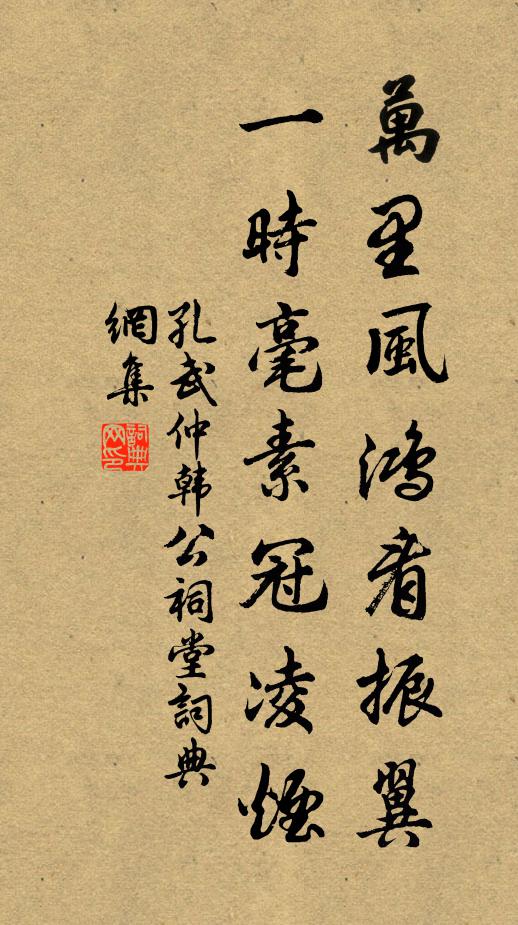 萬里風鴻看振翼
一時毫素冠凌煙
孔武仲韩公祠堂詞典
網集
詞典
网印